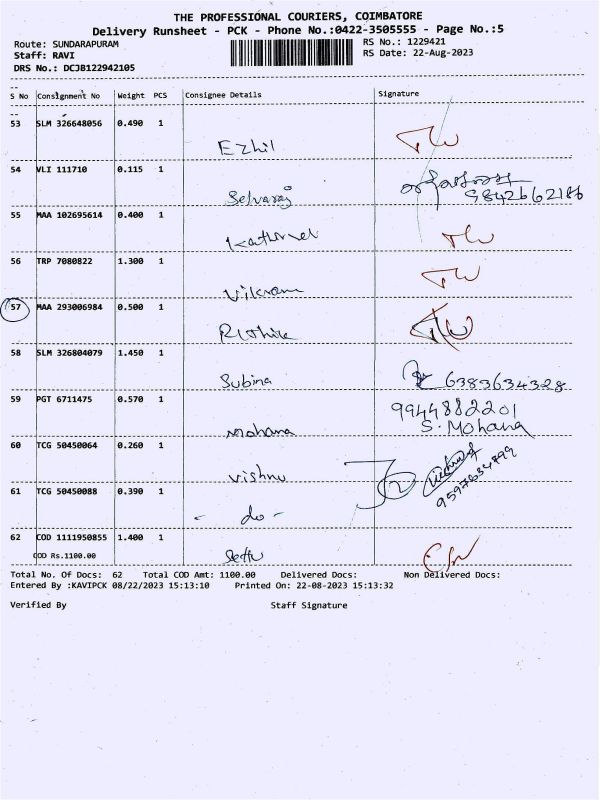 THE PROFESSIONAL COURIERS, COIMBATORE
Delivery Runsheet - PCK - Phone No.:0422-3505555 - Page No.:5
Route: SUNDARAPURAM
RS No.: 1229421
Staff: RAVI
RS Date: 22-Aug-2023
DRS No.: DCJB122942105
S No Consignment No Weight PCS Consignee Details Signature
53 SLM 326648056 0.490 1 Ezhil
54 VLI 111710 0.115 1 Selvaraj
9842662186
55 MAA 102695614 0.400 1 Kathirvel
56 TRP 7080822 1.300 1 Vikram
57 MAA 293006984 0.500 1 Rithik
58 SLM 326804079 1.450 1 Subina 6383634328
59 PGT 6711475 0.570 1 Mohana 9944882201
S. Mohana
60 TCG 50450064 0.260 1 Vishnu
9597634799
61 TCG 50450088 0.390 1 - do -
62 COD 1111950855 1.400 1 Sethu
COD Rs.1100.00
Total No. Of Docs: 62 Total COD Amt: 1100.00 Delivered Docs: Non Delivered Docs:
Entered By :KAVIPCK 08/22/2023 15:13:10 Printed On: 22-08-2023 15:13:32
Verified By Staff Signature